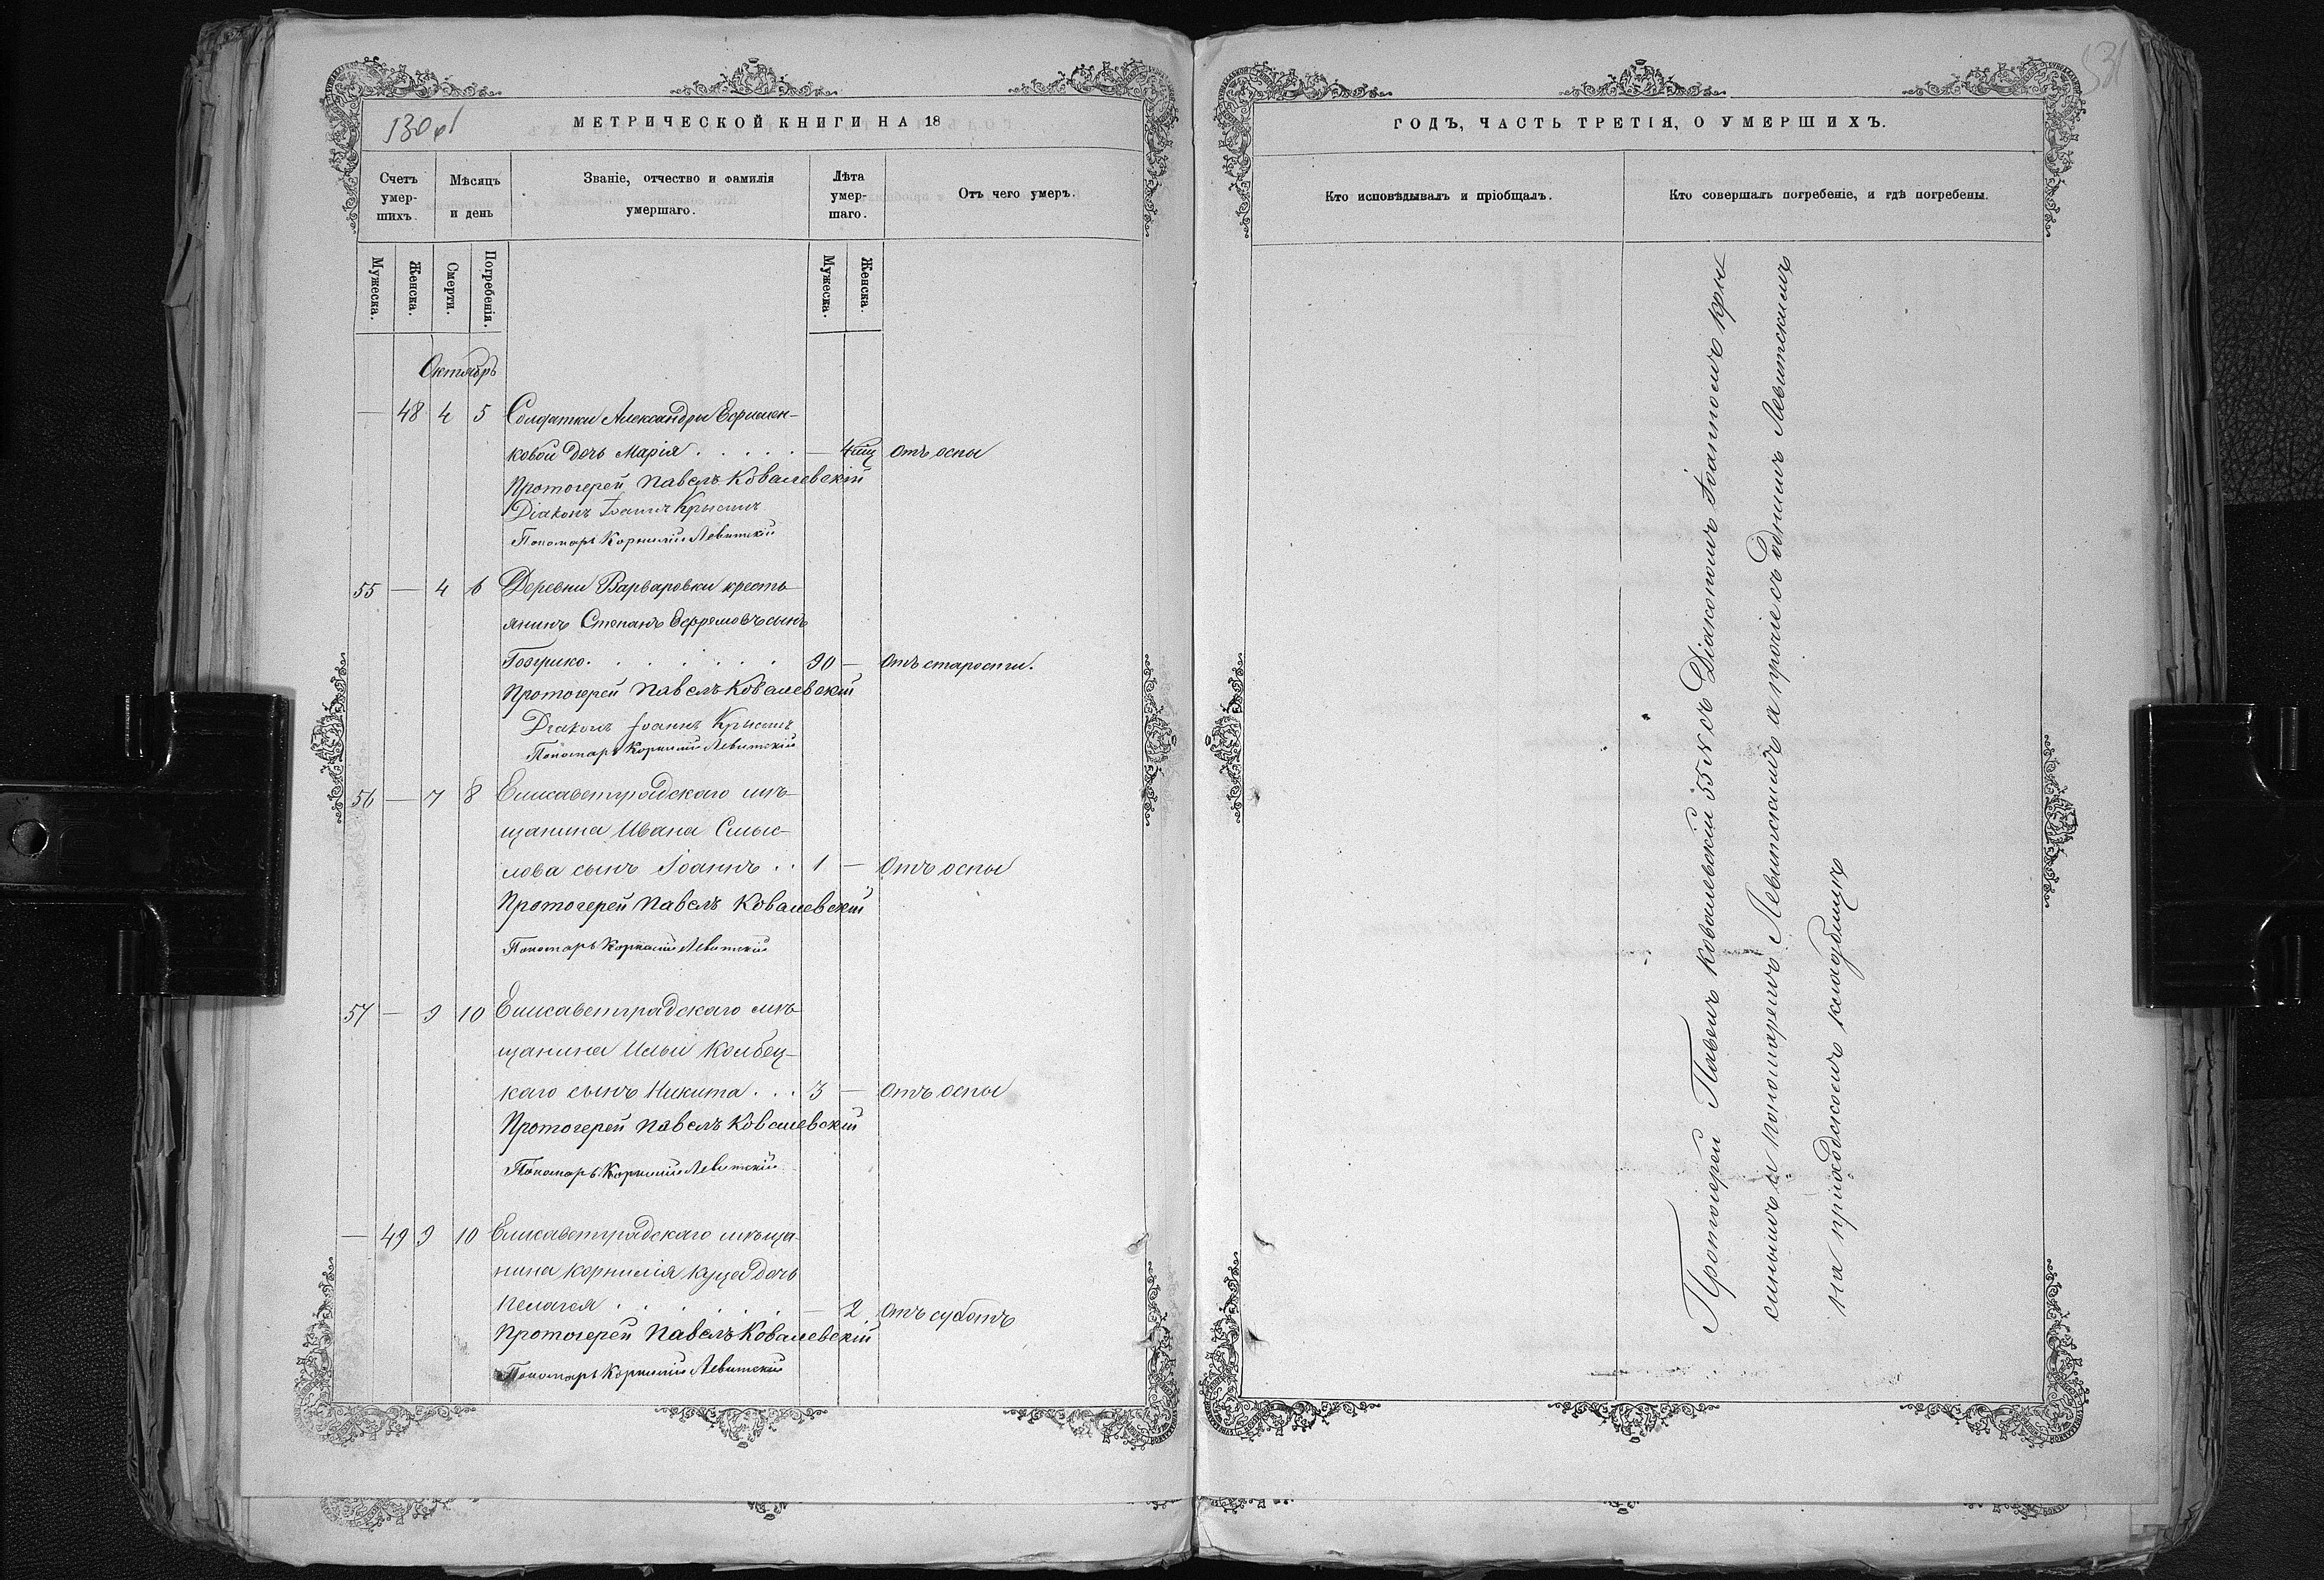 МЕТРИЧЕСКОЙ КНИГИ НА 18
Счетъ умер-шихъ.
Мѣсяцъ и день
Званіе, отчество и фамилія умершаго.
Лѣта умер-шаго.
Отъ чего умеръ.
Мужеска.
Женска.
Смерти.
Погребенія.
Мужеска.
Женска.
Октябрь
— 48 4 5 Солдатки Александры Ефимен-
ковой дочь Марія . . . . . — Отъ оспы
Протоіерей Павелъ Ковалевскій
Діаконъ Іоаннъ
Пономарь Корнилій Левитскій
55 — 4 6 Деревни Варваровки кресть-
янинъ Степанъ Ефремовъ сынъ
90 — Отъ старости.
Протоіерей Павелъ Ковалевскій
Діаконъ Іоаннъ
Пономарь Корнилій Левитскій
56 — 7 8 Елисаветградскаго мѣ-
щанина Ивана Смыс-
лова сынъ Іоаннъ . . 1 — Отъ оспы
Протоіерей Павелъ Ковалевскій
Пономарь Корнилій Левитскій
57 — 9 10 Елисаветградскаго мѣ-
щанина Ильи Колбец-
каго сынъ Никита . . . 3 — Отъ оспы
Протоіерей Павелъ Ковалевскій
Пономарь Корнилій Левитскій
— 49 9 10 Елисаветградскаго мѣща-
нина Корнилія Куца дочь
Пелагея . . . . . . — 2 Отъ
Протоіерей Павелъ Ковалевскій
Пономарь Корнилій Левитскій
531
ГОДЪ, ЧАСТЬ ТРЕТІЯ, О УМЕРШИХЪ.
Кто исповѣдывалъ и пріобщалъ.
Кто совершалъ погребеніе, и гдѣ погребены.
Протоіерей Павелъ Ковалевскій 55 № съ Діакономъ Іоанномъ
и пономаремъ Левитскимъ а прочіе съ однимъ Левитскимъ
на приходскомъ кладбищѣ